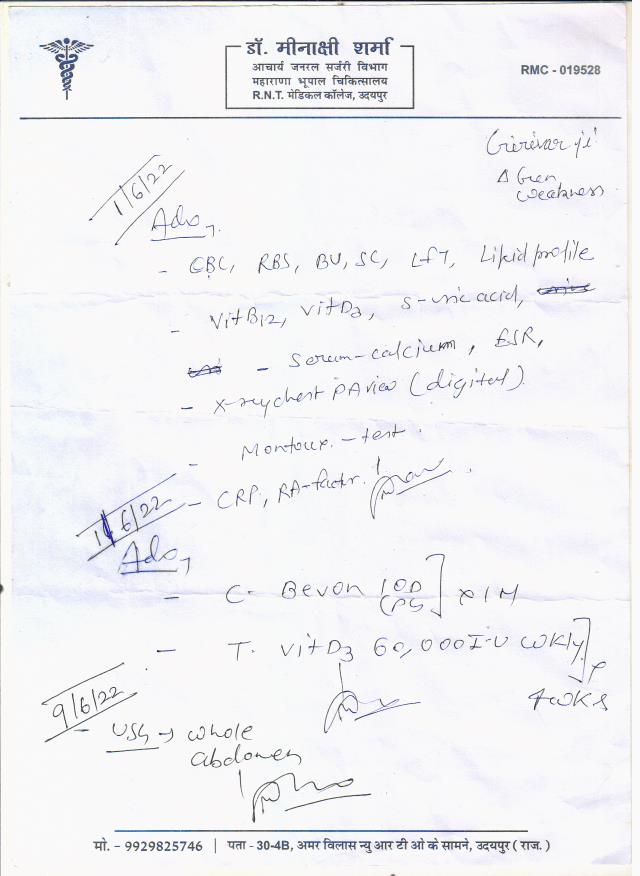 डॉ. मीनाक्षी शर्मा
आचार्य जनरल सर्जरी विभाग
महाराणा भूपाल चिकित्सालय
R.N.T. मेडिकल कॉलेज, उदयपुर
RMC - 019528
Girivar ji
Δ Gen
weakness
1/6/22
Adv
- CBC, RBS, BU, SC, LFT, Lipid profile
- Vit B12, Vit D3, S-uric acid,
- Serum-calcium, ESR,
- X-ray chest PA view (digital)
- Montoux - test.
- CRP, RA-factor.
6/22
Adv
- C. Bevon 1OD x 1M
- T. Vit D3 60,000 I.U wkly
4 wks
9/6/22
- USG → whole
abdomen
मो. - 9929825746 | पता - 30-4B, अमर विलास न्यु आर टी ओ के सामने, उदयपुर ( राज. )